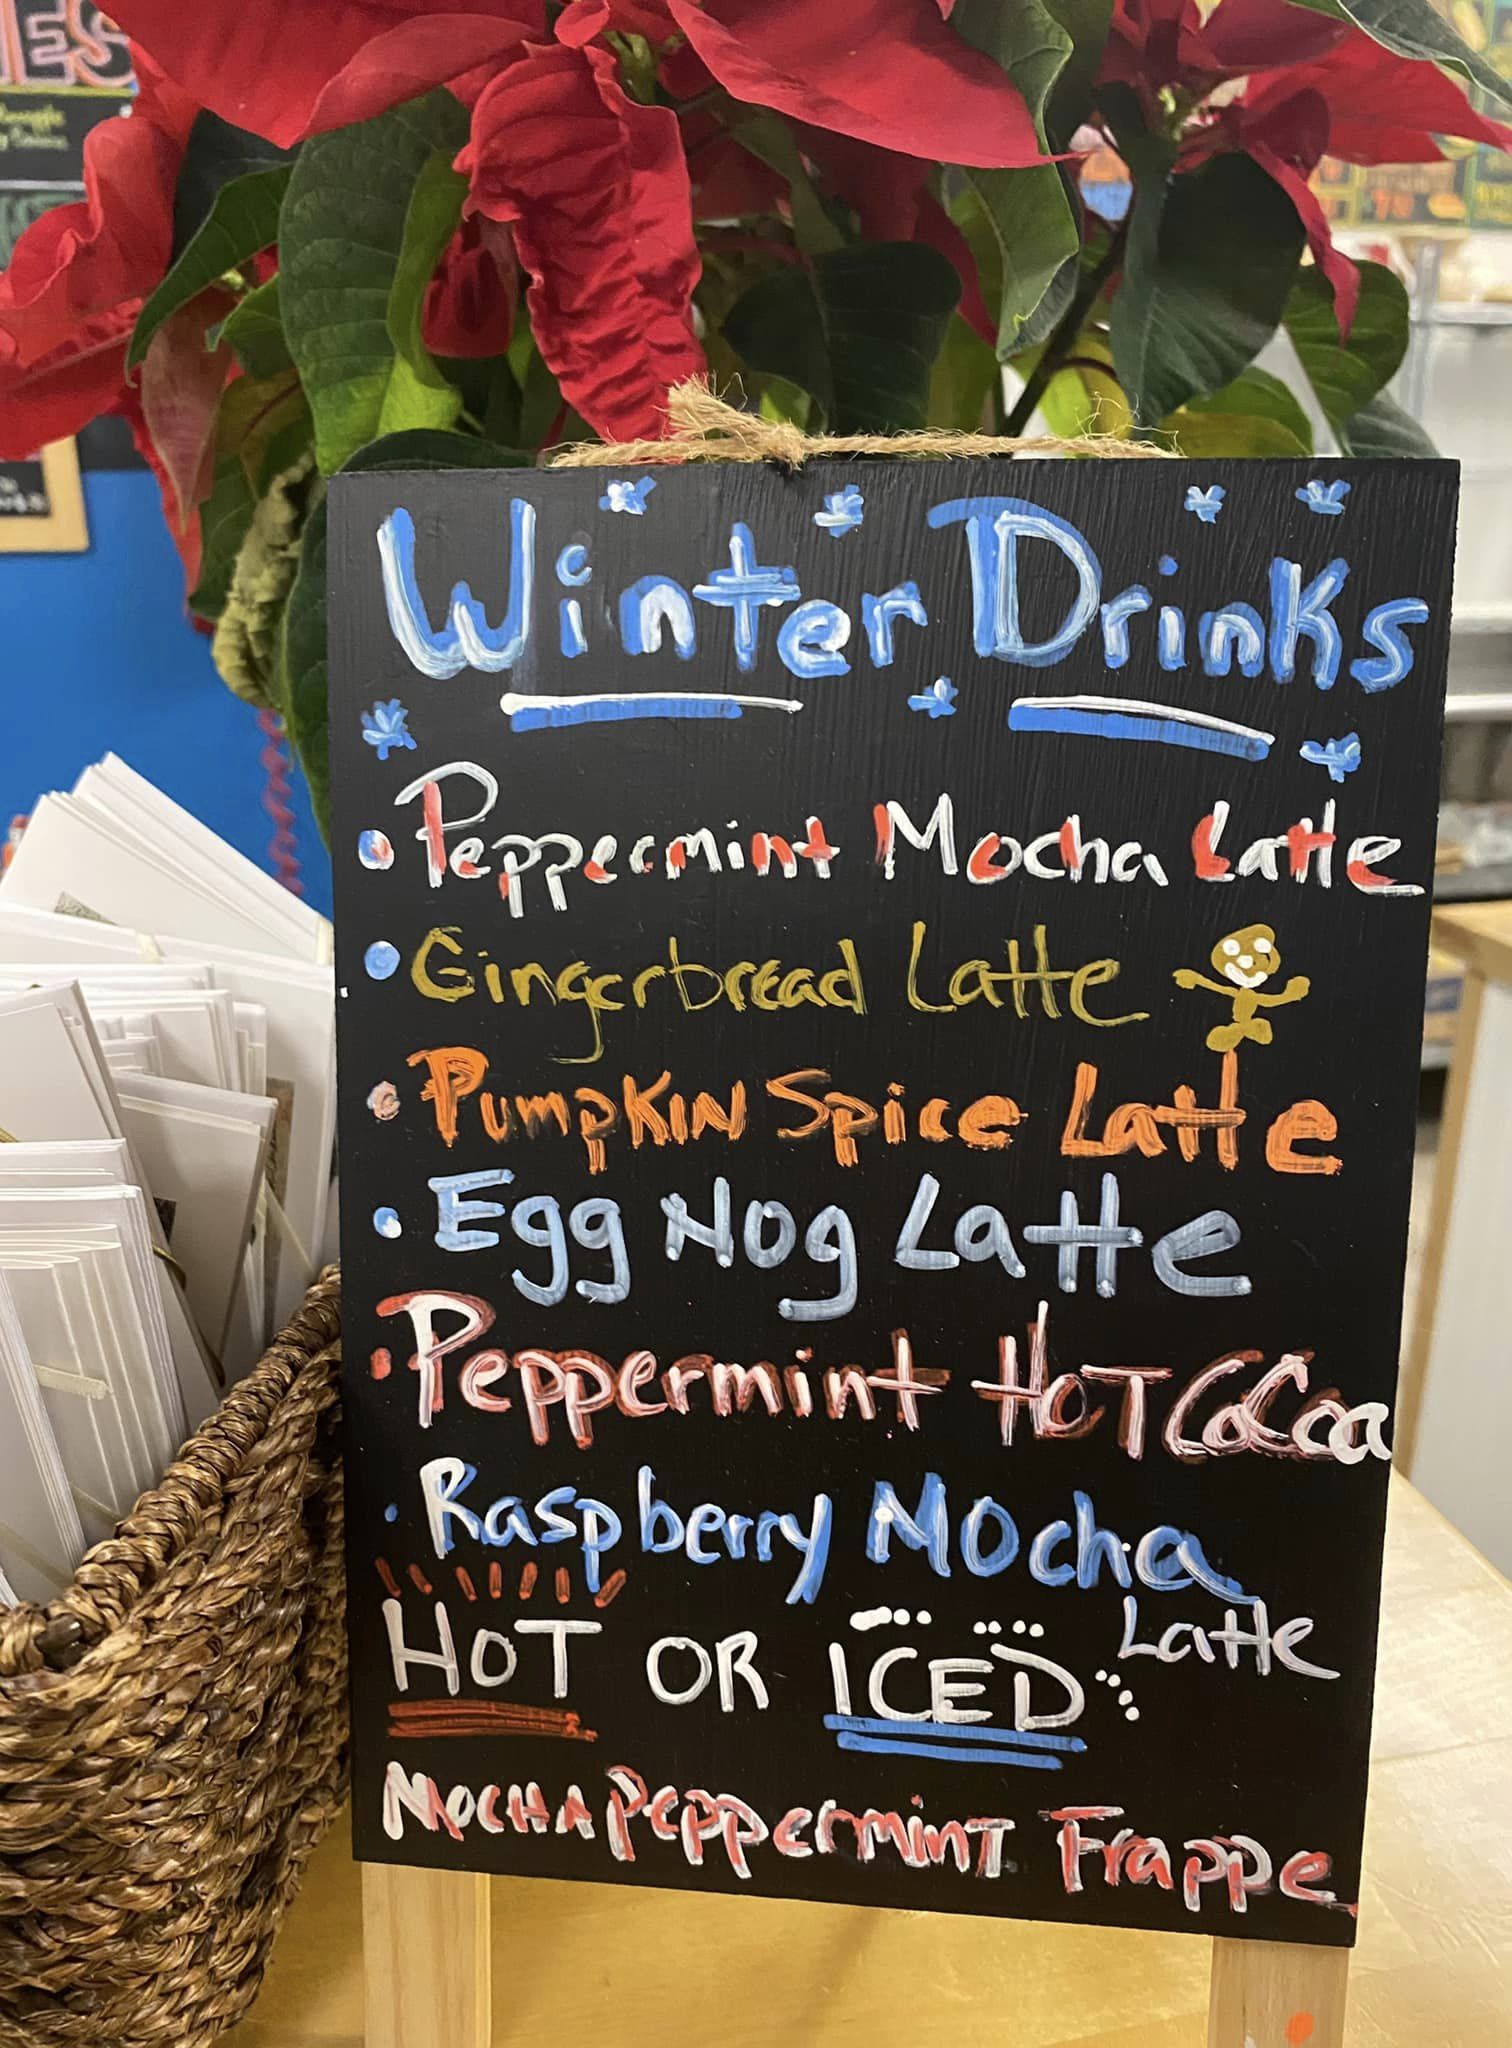 Winter Drinks
Peppermint Mocha Latte
Gingerbread Latte
Pumpkin Spice Latte
Egg Nog Latte
Peppermint Hot Cocoa
Raspberry Mocha
Latte
HOT OR ICED
Mocha Peppermint Frappe